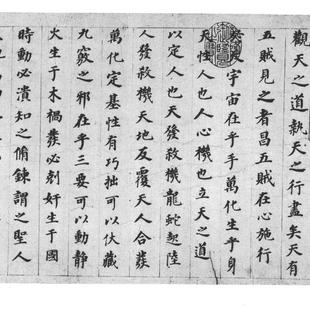 觀天之道執天之行盡矣天有
五賊見之者昌五賊在心施行
宇宙在乎手萬化生乎身
天性人也人心機也立天之道
以定人也天發殺機龍蛇起陸
人發殺機天地反覆天人合發
萬化定基性有巧拙可以伏藏
九竅之邪在乎三要可以動靜
火生于木禍發必剋奸生于國
時動必潰知之脩鍊謂之聖人